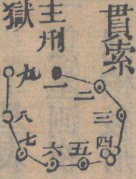 貫索
主刑
獄
一
二
三
四
五
六
七
八
九